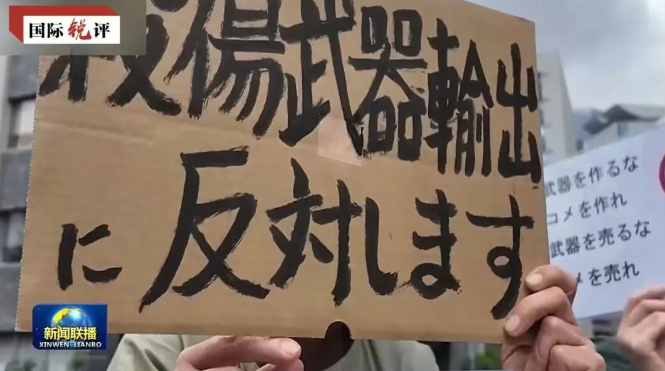 国际锐评
殺傷武器輸出
に反対します
武器を作るな
コメを作れ
武器を売るな
コメを売れ
新闻联播
XINWEN LIANBO